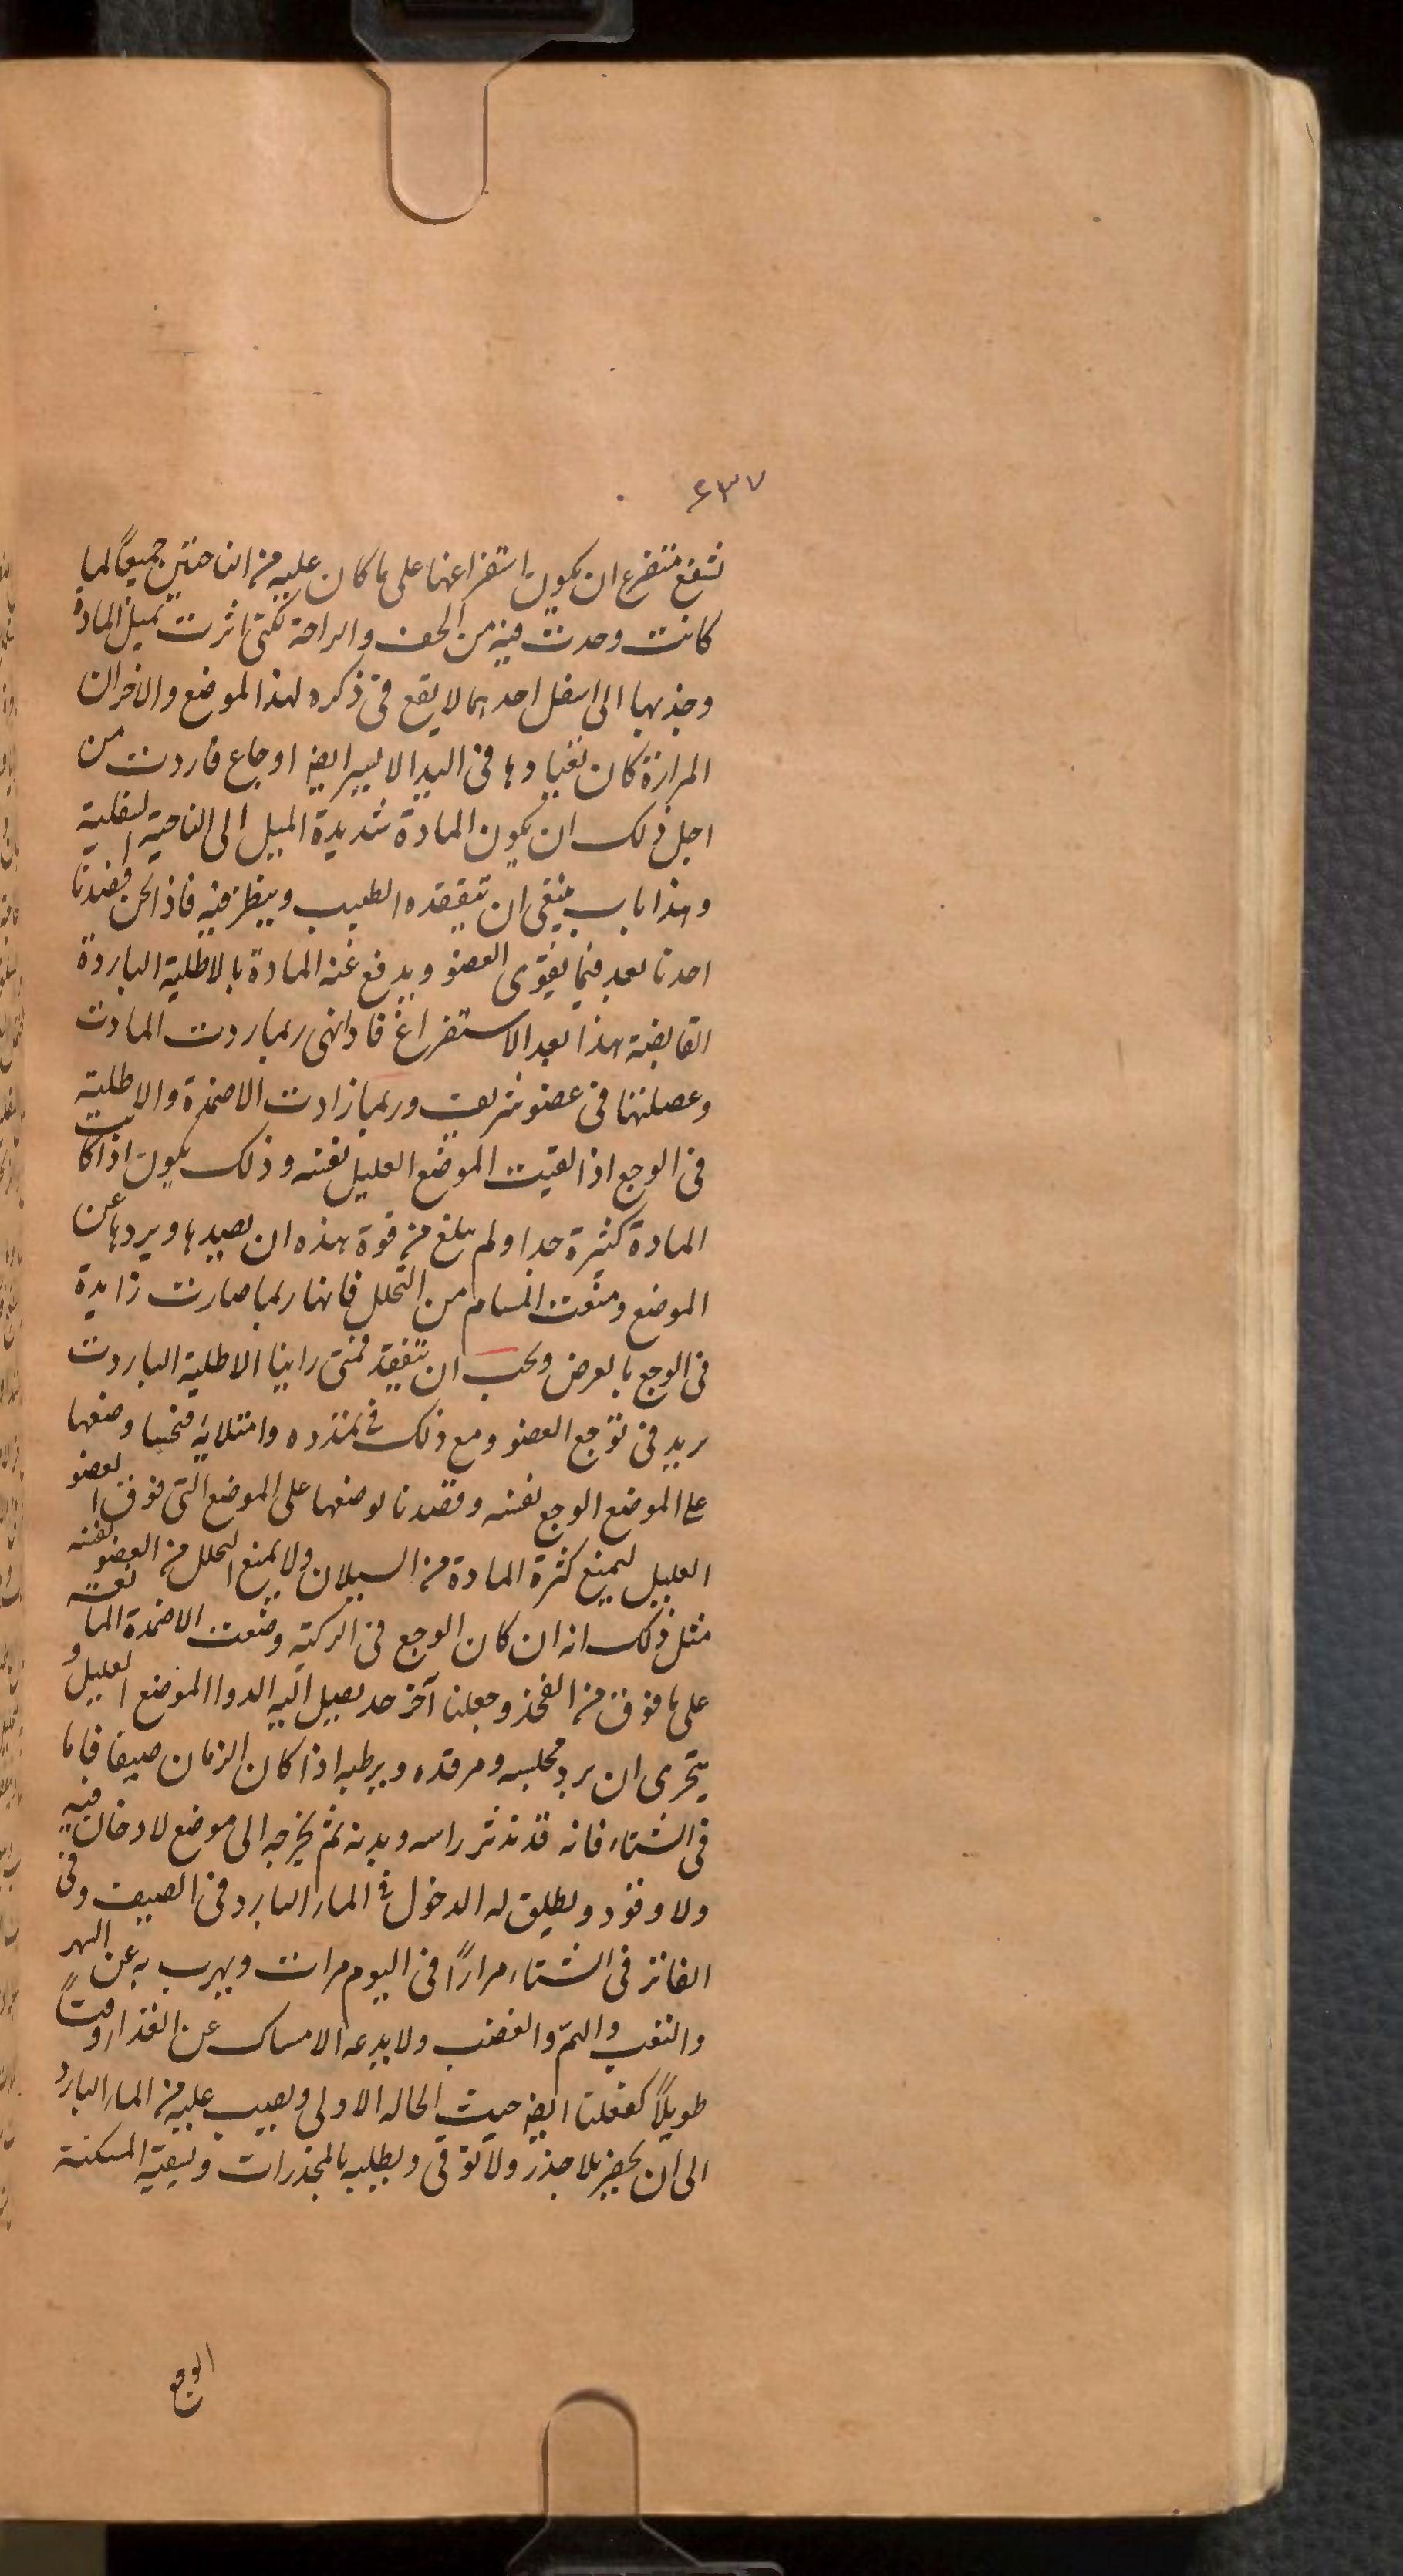 ٤٣٧
ان يكون استفراغها على ما كان عليه من الناحيتين جميعًا لما
كانت وحدت فيه من الخف والراحة لكنى اثرت تميل المادة
وجذبها الى اسفل احدهما لا يقع فى ذكره لهذا الموضع والاخر ان
المرارة كان فى اليد الايسر ايضا اوجاع فاردت من
اجل ذلك ان يكون المادة شديدة الميل الى الناحية السفلية
وهذا باب ينبغى ان يتفقده الطبيب وينظر فيه فاذا نحن فصدنا
اخذنا بعد فيما يقوى العضو ويدفع عنه المادة بالاطلية الباردة
القابضة هذا بعد الاستفراغ ربما ردت المادة
فى عضو شريف وربما زادت الاضمدة والاطلية
فى الوجع اذا لقيت الموضع العليل نفسه وذلك يكون اذا كانت
المادة كثيرة جدا ولم يبلغ من قوة هذه ان يصدها ويردها عن
الموضع ومنعت المسام من التحلل فانها ربما صارت زايدة
فى الوجع بالعرض ويجب ان تتفقد فمتى راينا الاطلية الباردت
يزيد فى توجع العضو ومع ذلك فى تمدده وامتلايه فنحينا وضعها
على الموضع الوجع نفسه وقصدنا بوضعها على الموضع التى فوق العضو
العليل ليمنع كثرة المادة من السيلان ولا يمنع التحلل من العضو نفسه
مثل ذلك انه ان كان الوجع فى الركبة وضعت الاضمدة المانعة
على ما فوق من الفخذ وجعلنا آخر حد يصل اليه الدوا الموضع العليل و
يتحرى ان يبرد مجلسه ومرقده ويرطبه اذا كان الزمان صيفا فاما
فى الشتاء فانه قد ندثر راسه وبدنه ثم يخرجه الى موضع لا دخان فيه
ولا وقود ويطلق له الدخول فى الماء البارد فى الصيف وفى
الفاتر فى الشتاء مرارًا فى اليوم مرات ويهرب به عن السهر
والتعب والهمّ والغضب ولا يدعه الامساك عن الغذاء وقتًا
طويلًا كفعلنا ايضا حيث الحاله الاولى ويصب عليه من الماء البارد
الى ان يخضر بلا حذر ولا توقى ويطليه بالمخدرات ويسقيه المسكنة
الوجع